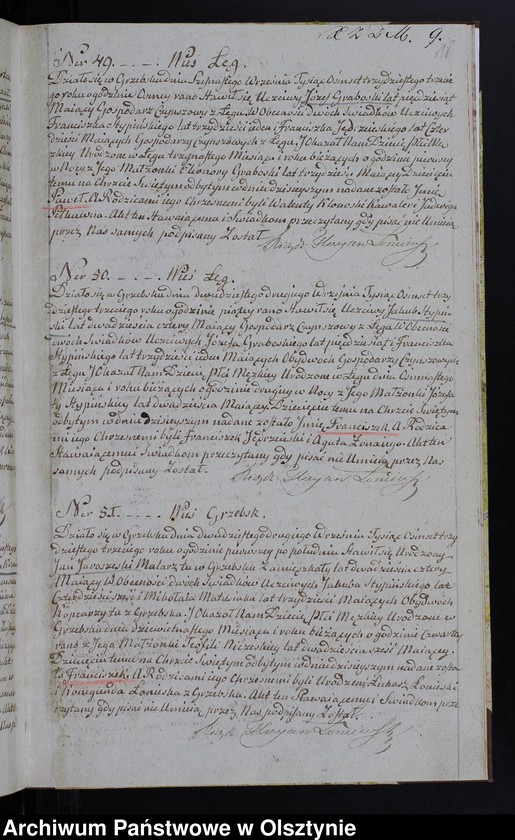 9.
Ner 49. _ . _ . _ : Wieś Łęg.
Działo się w Grzebsku dnia Szesnastego Września Tysiąc Osmset trzydziestego trzecie
go roku o godzinie Osmey rano Stawił się Uczciwy Józef Graboski lat pięćdziesiąt
Maiący Gospodarz Czynszowy z Łęgu, W Obecności dwóch Swiadków Uczciwych
Franciszka Stypińskiego lat trzydzieści ieden i Franciszka Jędrzeiskiego lat Czter
dzieści Maiących Gospodarzy Czynszowych z Łęgu, I Okazał Nam Dziecie Płci Mę
zkiey Urodzone w Łęgu trzynastego Miesiąca i roku bieżących o godzinie pierwszy
w Nocy z Jego Małżonki Eleonory Graboski lat trzydzieści Maiący Dziecięciu
temu na Chrzcie Swiętym odbytym w dniu dzisieyszym nadane zostało Jmie
Paweł. A Rodzicami iego Chrzesnemi byli Walenty Kawaler i Jadwiga
Akt ten Stawaiącemu i Swiadkom przeczytany gdy pisać nie Umieią
przez Nas samych podpisany Został.
Ner 50. _ . _ . _ . Wieś Łęg.
Działo się w Grzebsku dnia dwudziestego drugiego Września Tysiąc Osmset trzy
dziestego trzeciego roku o godzinie piątey rano Stawił się Uczciwy Jakub Stypiń
ski lat dwadzieścia cztery Maiący Gospodarz Czynszowy z Łęgu W Obecności
dwoch Swiadków Uczciwych Jozefa Graboskiego lat pięćdziesiąt i Franciszka
Stypińskiego lat trzydzieści ieden Maiących Obydwóch Gospodarzy Czynszowych
z Łęgu, I Okazał Nam Dziecie Płci Męzkiey Urodzone w Łęgu dnia Osmnastego
Miesiąca i roku bieżących o godzinie drugiey w Nocy z Jego Małżonki Józefa
ty Stypińskiey lat dwadzieścia Maiącey, Dziecięciu temu na Chrzcie Swiętym
odbytym w dniu dzisieyszym nadane zostało Jmie Franciszek. A Rodzica
mi iego Chrzesnemi byli Franciszek Jędrzeiski i Agata Akt ten
Stawaiącemu i Swiadkom przeczytany gdy pisać nie Umieią przez Nas
samych podpisany Został.
Ner 51. _ . _ . _ Wieś Grzebsk.
Działo się w Grzebsku dnia dwudziestego drugiego Września Tysiąc Osmset trzy
dziestego trzeciego roku o godzinie pierwszy po południu Stawił się Urodzony
Jan Jaroszeski Malarz tu w Grzebsku Zamieszkały lat dwadzieścia cztery
Maiący W Obecności dwóch Swiadków Uczciwych Jakuba Stypińskiego lat
Czterdzieści sześć i Mikołaia lat trzydzieści Maiących Obydwóch
tu z Grzebska. I Okazał Nam Dziecie Płci Męzkiey Urodzone w
Grzebsku dnia dziewietnastego Miesiąca i roku bieżących o godzinie Czwartey
rano z Jego Małżonki Teofili lat dwadzieścia sześć Maiącey.
Dziecięciu temu na Chrzcie Swiętym odbytym w dniu dzisieyszym nadane zosta
ło Franciszek. A Rodzicami iego Chrzesnemi byli Urodzeni Łukasz Łoniewski
i Kunegunda Łoniewska z Grzebska. Akt ten Stawaiącemu i Swiadkom prze
czytany gdy pisać nie Umieią przez Nas podpisany Został.
Archiwum Państwowe w Olsztynie